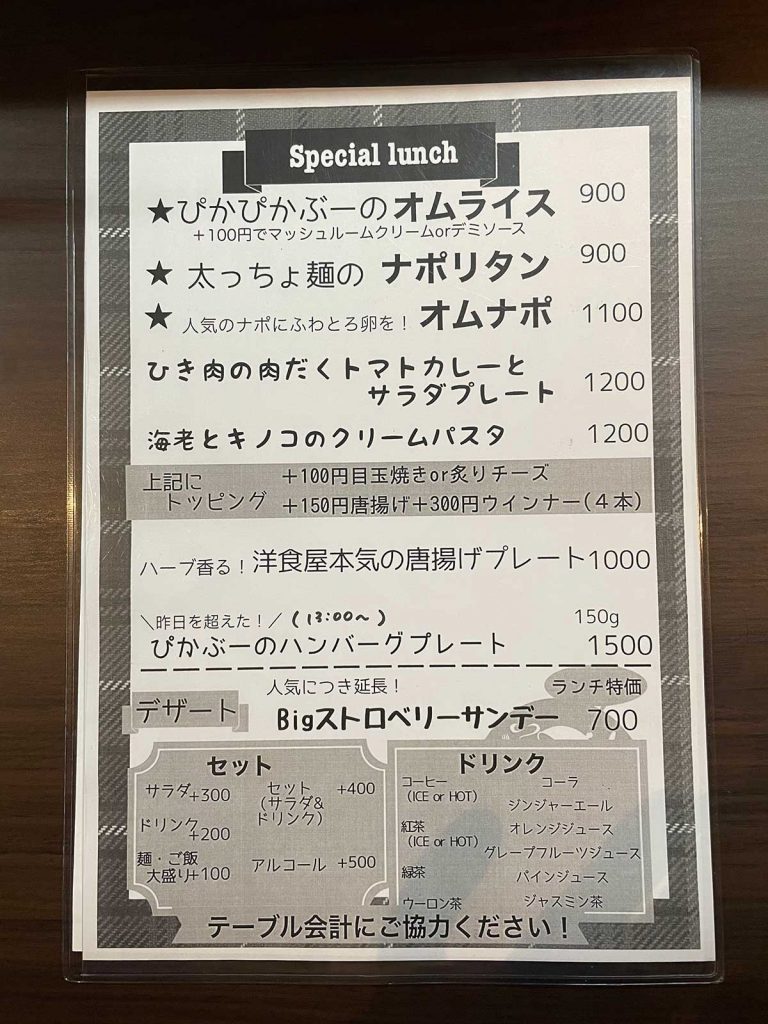 Special lunch
★ぴかぴかぶーのオムライス 900
+100円でマッシュルームクリームorデミソース
★ 太っちょ麺の ナポリタン 900
★ 人気のナポにふわとろ卵を！ オムナポ 1100
ひき肉の肉だくトマトカレーと
サラダプレート 1200
海老とキノコのクリームパスタ 1200
上記に
トッピング
+100円目玉焼きor炙りチーズ
+150円唐揚げ+300円ウインナー(４本)
ハーブ香る！洋食屋本気の唐揚げプレート1000
＼昨日を超えた！／ (13:00〜) 150g
ぴかぶーのハンバーグプレート 1500
人気につき延長！ ランチ特価
デザート Bigストロベリーサンデー 700
セット
サラダ+300
ドリンク+200
麺・ご飯
大盛り+100
セット +400
(サラダ&
ドリンク)
アルコール +500
ドリンク
コーヒー
(ICE or HOT)
紅茶
(ICE or HOT)
緑茶
ウーロン茶
コーラ
ジンジャーエール
オレンジジュース
グレープフルーツジュース
パインジュース
ジャスミン茶
テーブル会計にご協力ください！